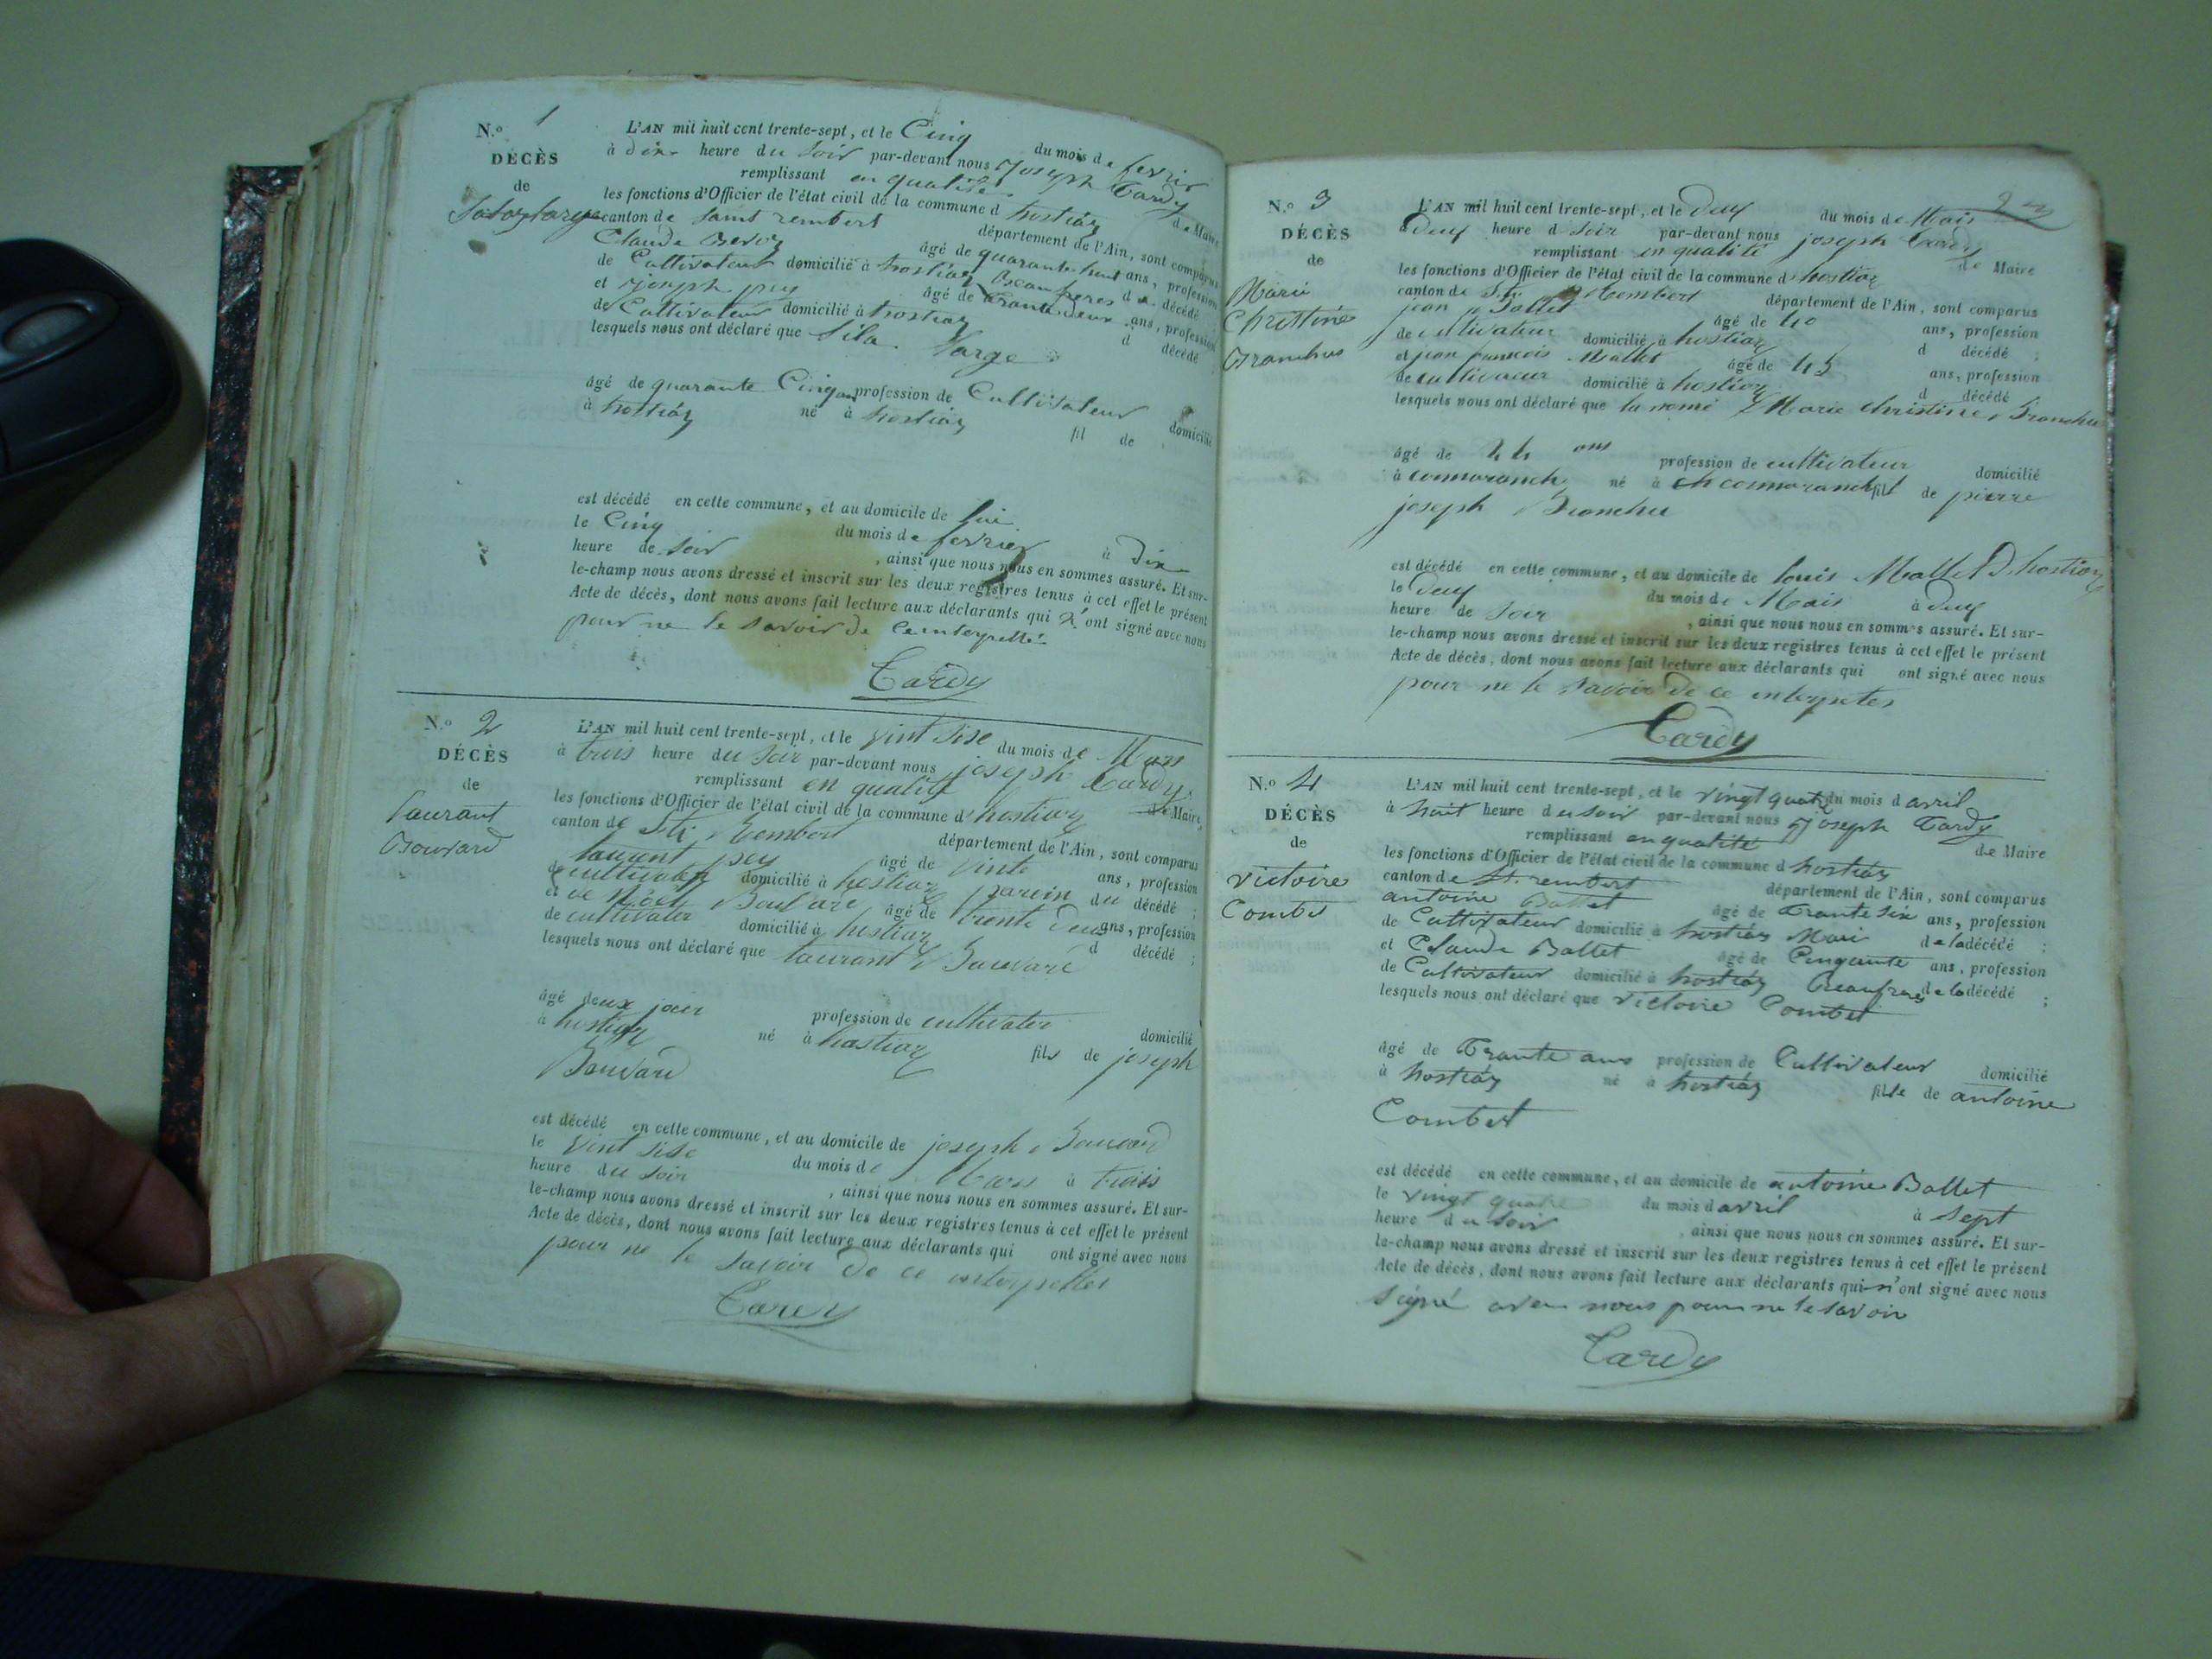 N.º 1
DÉCÈS
de
L'AN mil huit cent trente-sept, et le Cinq du mois de fevrier
à dix heure du soir par-devant nous Joseph Tardy
remplissant en qualité de Maire
les fonctions d'Officier de l'état civil de la commune d hostiaz
canton de saint rembert département de l'Ain, sont comparus
Claude âgé de quarante huit ans, profession
de Cultivateur domicilié à hostiaz Beaufreres de décédé ;
et joseph pey âgé de trante deux ans, profession
de Cultivateur domicilié à hostiaz d décédé
lesquels nous ont déclaré que Sila
âgé de quarante Cinq ans profession de Cultivateur domicilié
à hostiaz né à hostiaz fil de
est décédé en cette commune, et au domicile de lui
le Cinq du mois de fevrier à dix
heure de soir , ainsi que nous nous en sommes assuré. Et sur-
le-champ nous avons dressé et inscrit sur les deux registres tenus à cet effet le présent
Acte de décès, dont nous avons fait lecture aux déclarants qui n'ont signé avec nous
pour ne le savoir de ce interpellé
Tardy
N.º 2
DÉCÈS
de
laurant
Bouvard
L'AN mil huit cent trente-sept, et le vint sise du mois de Mars
à trois heure du soir par-devant nous joseph tardy
remplissant en qualité de Maire
les fonctions d'Officier de l'état civil de la commune d'hostiaz
canton de St. Rembert département de l'Ain, sont comparus
laurent pey âgé de vinte ans, profession
de cultivater domicilié à hostiaz parein du décédé ;
et âgé de trente deux ans, profession
de cultivater domicilié à hostiaz d décédé ;
lesquels nous ont déclaré que laurant Bouvard
âgé deux jour profession de cultivater domicilié
à hostiaz né à hostiaz fils de joseph
Bouvard
est décédé en cette commune, et au domicile de joseph Bouvard
le vint sise du mois de Mars à trois
heure du soir , ainsi que nous nous en sommes assuré. Et sur-
le-champ nous avons dressé et inscrit sur les deux registres tenus à cet effet le présent
Acte de décès, dont nous avons fait lecture aux déclarants qui ont signé avec nous
pour ne le savoir de ce interpelles
Tardy
23
N.º 3
DÉCÈS
de
Marie
Christine
Branchu
L'AN mil huit cent trente-sept, et le deuf du mois de Mais
à deuf heure d soir par-devant nous joseph tardy
remplissant en qualité de Maire
les fonctions d'Officier de l'état civil de la commune d hostiaz
canton de St. Rembert département de l'Ain, sont comparus
jean âgé de 40 ans, profession
de cultivateur domicilié à hostiaz d décédé ;
et jean francois Mallet âgé de 45 ans, profession
de cultivateur domicilié à hostiaz d décédé
lesquels nous ont déclaré que la nomé Marie christine Branchu
âgé de 44 ans profession de cultivateur domicilié
à connoranche né à connoranche fils de pierre
joseph Branchu
est décédé en cette commune, et au domicile de louis Mallet D hostiaz
le deuf du mois de Mais à deuf
heure de soir , ainsi que nous nous en sommes assuré. Et sur-
le-champ nous avons dressé et inscrit sur les deux registres tenus à cet effet le présent
Acte de décès, dont nous avons fait lecture aux déclarants qui ont signé avec nous
pour ne le savoir de ce interpeles
Tardy
N.º 4
DÉCÈS
de
victoire
Combet
L'AN mil huit cent trente-sept, et le vingt quatre du mois d avril
à huit heure du soir par-devant nous Joseph Tardy
remplissant en qualité de Maire
les fonctions d'Officier de l'état civil de la commune d hostiaz
canton de St. rembert département de l'Ain, sont comparus
antoine Ballet âgé de trante six ans, profession
de Cultivateur domicilié à hostiaz Mari de la décédé ;
et Claude Ballet âgé de Cinquante ans, profession
de Cultivateur domicilié à hostiaz Beaufrere de la décédé ;
lesquels nous ont déclaré que victoire Combet
âgé de trante ans profession de Cultivateur domicilié
à hostiaz né à hostiaz fille de antoine
Combet
est décédé en cette commune, et au domicile de antoine Ballet
le vingt quatre du mois d avril à sept
heure du soir , ainsi que nous nous en sommes assuré. Et sur-
le-champ nous avons dressé et inscrit sur les deux registres tenus à cet effet le présent
Acte de décès, dont nous avons fait lecture aux déclarants qui n'ont signé avec nous
signé avec nous pour ne le savoir
Tardy